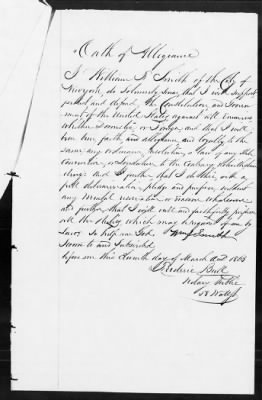 Oath of Allegiance
I William F Smith of the City of
Newyork, do solemnly swear that I will support
protect and defend, the Constitution, and Govern
ment of the United States against all enemies
whether Domestic or Foreign, and that I will
bear true faith, and allegiance and loyalty to the
same any ordinance, Resolution or law of any State
Convention or Legislature to the Contrary, notwithstan
ding: and I further that I do this, with a
full determination, pledge and purpose, without
any mental reservation or evasion whatsoever
and further that I will well and faithfully perform
all the duties which may be required of me by
Law. So help me God.
Sworn to and Subscribed
before me this day of March A.D. 1863
Frederic Bull
Notary Public
Wall St